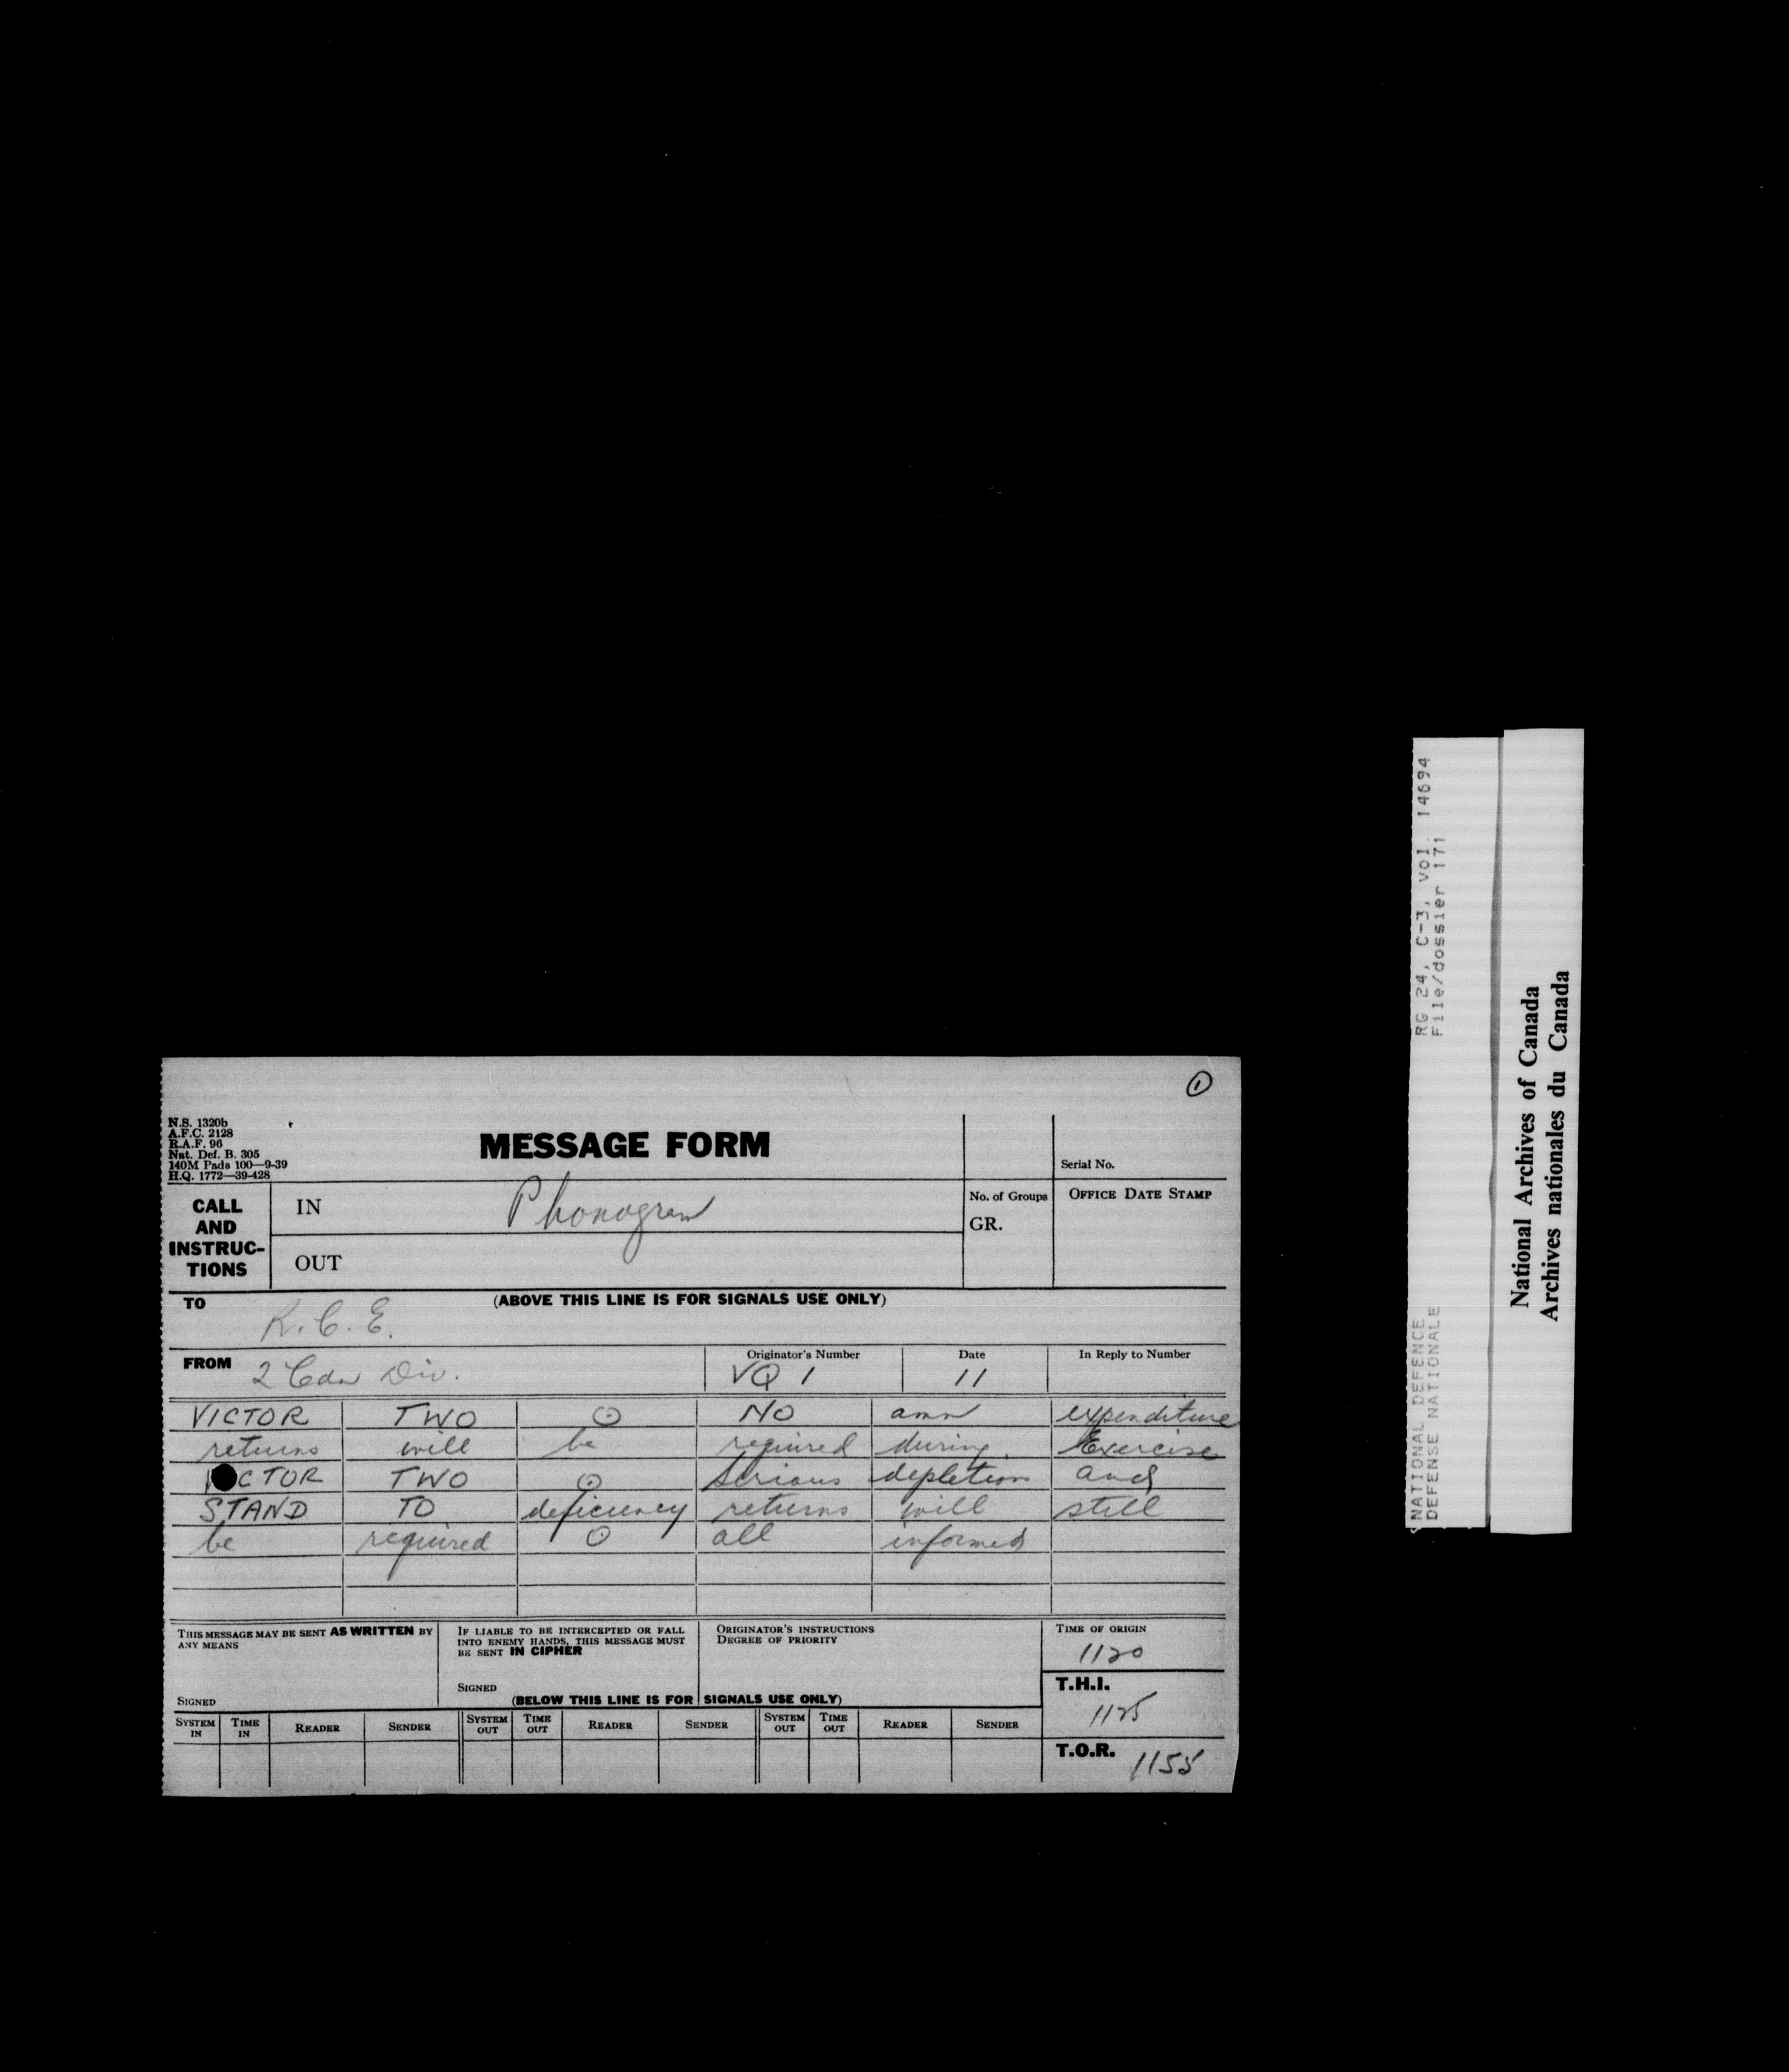 ①
N.S. 1320b
A.F.C. 2128
R.A.F. 96
Nat. Def. B. 305
140M Pads 100—9-39
H.Q. 1772—39-428
MESSAGE FORM
Serial No.
CALL AND INSTRUC-TIONS
IN Phonogram
OUT
No. of Groups
GR.
OFFICE DATE STAMP
TO R.C.E.
(ABOVE THIS LINE IS FOR SIGNALS USE ONLY)
FROM 2 Cdn Div.
Originator's Number VQ 1
Date 11
In Reply to Number
VICTOR TWO ⊙ NO amn expenditure
returns will be required during Exercise
V CTOR TWO ⊙ Serious depletion and
STAND TO deficiency returns will still
be required ⊙ all informed
THIS MESSAGE MAY BE SENT AS WRITTEN BY
ANY MEANS
SIGNED
IF LIABLE TO BE INTERCEPTED OR FALL
INTO ENEMY HANDS, THIS MESSAGE MUST
BE SENT IN CIPHER
SIGNED
ORIGINATOR'S INSTRUCTIONS
DEGREE OF PRIORITY
(BELOW THIS LINE IS FOR SIGNALS USE ONLY)
TIME OF ORIGIN
1120
T.H.I.
1125
T.O.R. 1155
SYSTEM IN TIME IN READER SENDER SYSTEM OUT TIME OUT READER SENDER SYSTEM OUT TIME OUT READER SENDER
RG 24, C-3, vol. 14694
File/dossier 171
NATIONAL DEFENCE
DEFENSE NATIONALE
National Archives of Canada
Archives nationales du Canada